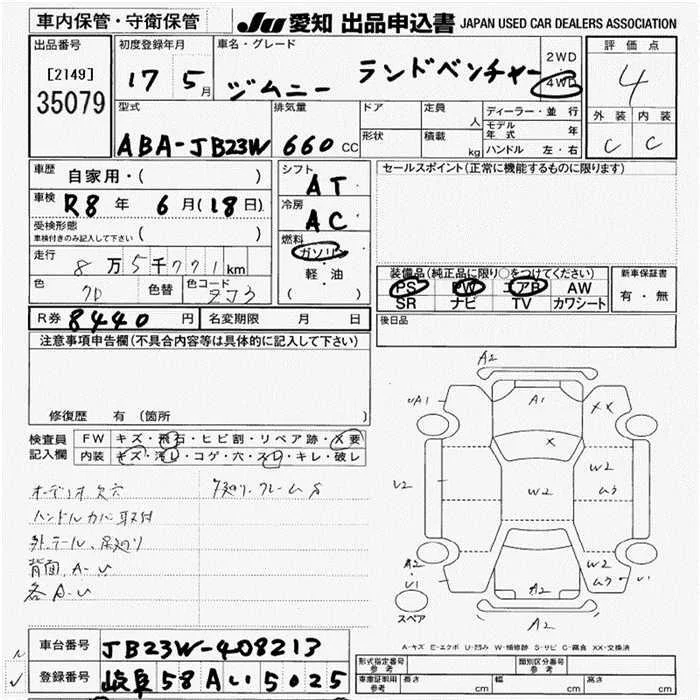 車内保管・守衛保管
JU 愛知 出品申込書 JAPAN USED CAR DEALERS ASSOCIATION
出品番号
[2149]
35079
初度登録年月
17 5月
車名・グレード
ジムニー ランドベンチャー
2WD
4WD
評価点
4
外装 内装
C C
型式
ABA-JB23W
排気量
660 CC
ドア
形状
定員 人
積載 kg
ディーラー・並行
モデル年式 年
ハンドル 左・右
車歴 自家用・( )
車検 R8年 6月(18日)
受検形態
車検付きのみ記入して下さい ( )
走行 8万5千771km
色 色替 色コード
シフト AT
冷房 AC
燃料
ガソリン
・
軽・油
( )
セールスポイント(正常に機能するものに限ります)
装備品(純正品に限り○をつけてください)
PS PW エアB AW
SR ナビ TV カワシート
新車保証書
有・無
R券 8440円 名変期限 月 日
後日品
注意事項申告欄(不具合内容等は具体的に記入して下さい)
修復歴 有 (箇所 )
検査員記入欄
FW キズ・飛石・ヒビ割・リペア跡・X要
内装 キズ・汚レ・コゲ・穴・スレ・キレ・破レ
オーデリオ欠穴
下廻り、フレームS
ハンドルカバー取付
外、テール、足廻り
背面、A-U
各A-U
A2
UA1
A1
XX
X
W2
ムラ
U2
W2
A2
U1
W2
ムラ
U1
A2
A2
スペア
A-キズ E-エクボ U-凹み W-補修跡 S-サビ C-腐食 XX-交換済
車台番号 JB23W-408213
登録番号 岐阜58Aい5025
形式指定番号
参考
類別区分番号
参考
車庫証明用
参考
長さ cm 幅 cm 高さ cm